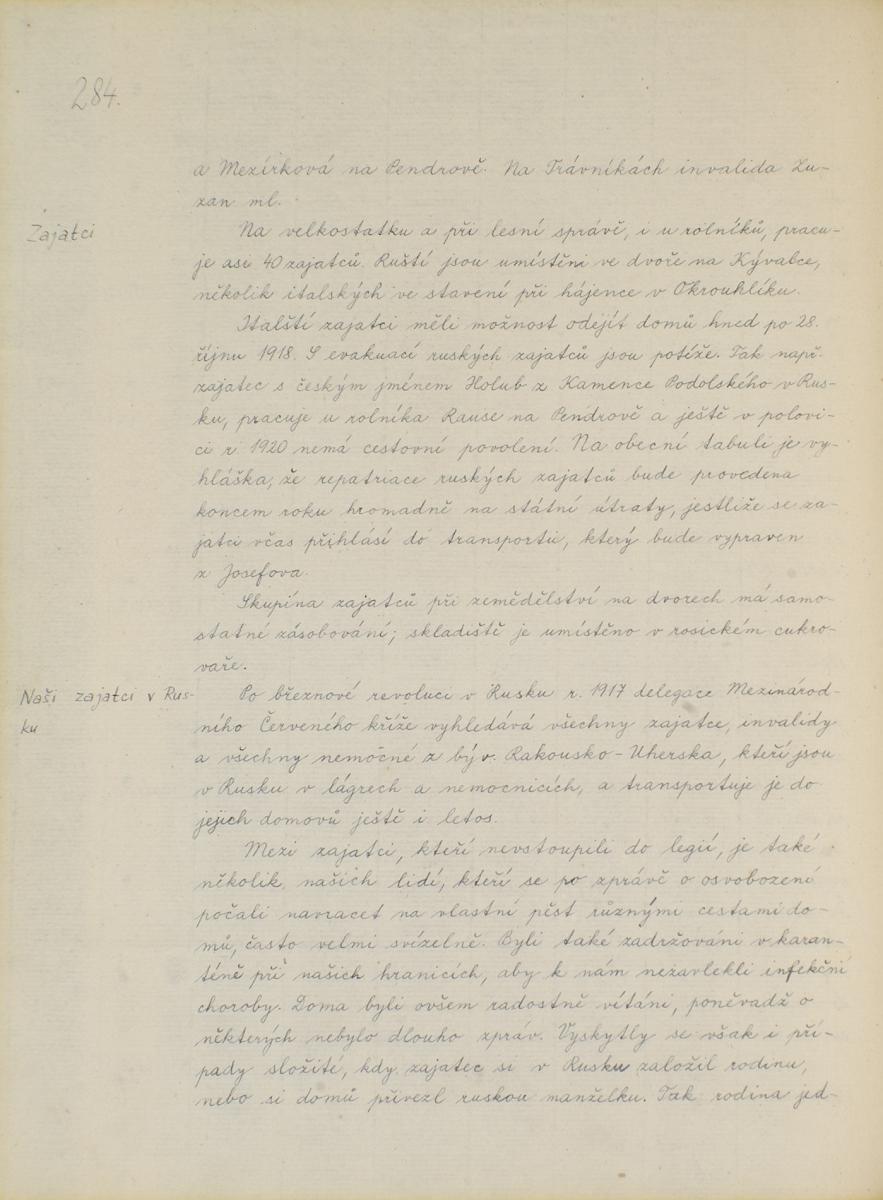 284.
a Mezírková na Pendrově. Na Trávníkách invalida Lu-
zan ml.
Zajatci
Na velkostatku a při lesní správě, i u rolníků, pracu-
je asi 40 zajatců. Ruští jsou umístěni ve dvoře na Kývalce,
několik italských ve stavení při hájence v Okrouhlíku.
Italští zajatci měli možnost odejít domů hned po 28.
říjnu 1918. S evakuací ruských zajatců jsou potíže. Tak např.
zajatec s českým jménem Holub z Kamence Podolského v Rus-
ku, pracuje u rolníka Rause na Pendrově a ještě v polovi-
ci r. 1920 nemá cestovní povolení. Na obecní tabuli je vy-
hláška, že repatriace ruských zajatců bude provedena
koncem roku hromadně na státní útraty, jestliže se za-
jatci včas přihlásí do transportu, který bude vypraven
z Josefova.
Skupina zajatců při zemědělství na dvorech má samo-
statné zásobování; skladiště je umístěno v rosickém cukro-
vaře.
Naši zajatci v Rus-
ku
Po březnové revoluci v Rusku r. 1917 delegace Mezinárod-
ního Červeného kříže vyhledává všechny zajatce, invalidy
a všechny nemocné z býv. Rakousko-Uherska, kteří jsou
v Rusku v lágrech a nemocnicích, a transportuje je do
jejich domovů ještě i letos.
Mezi zajatci, kteří nevstoupili do legií, je také
několik našich lidí, kteří se po zprávě o osvobození
počali navracet na vlastní pěst různými cestami do-
mů, často velmi svízelně. Byli také zadržováni v karan-
téně při našich hranicích, aby k nám nezavlekli infekční
choroby. Doma byli ovšem radostně vítáni, poněvadž o
některých nebylo dlouho zpráv. Vyskytly se však i pří-
pady složité, kdy zajatec si v Rusku založil rodinu,
nebo si domů přivezl ruskou manželku. Tak rodina jed-